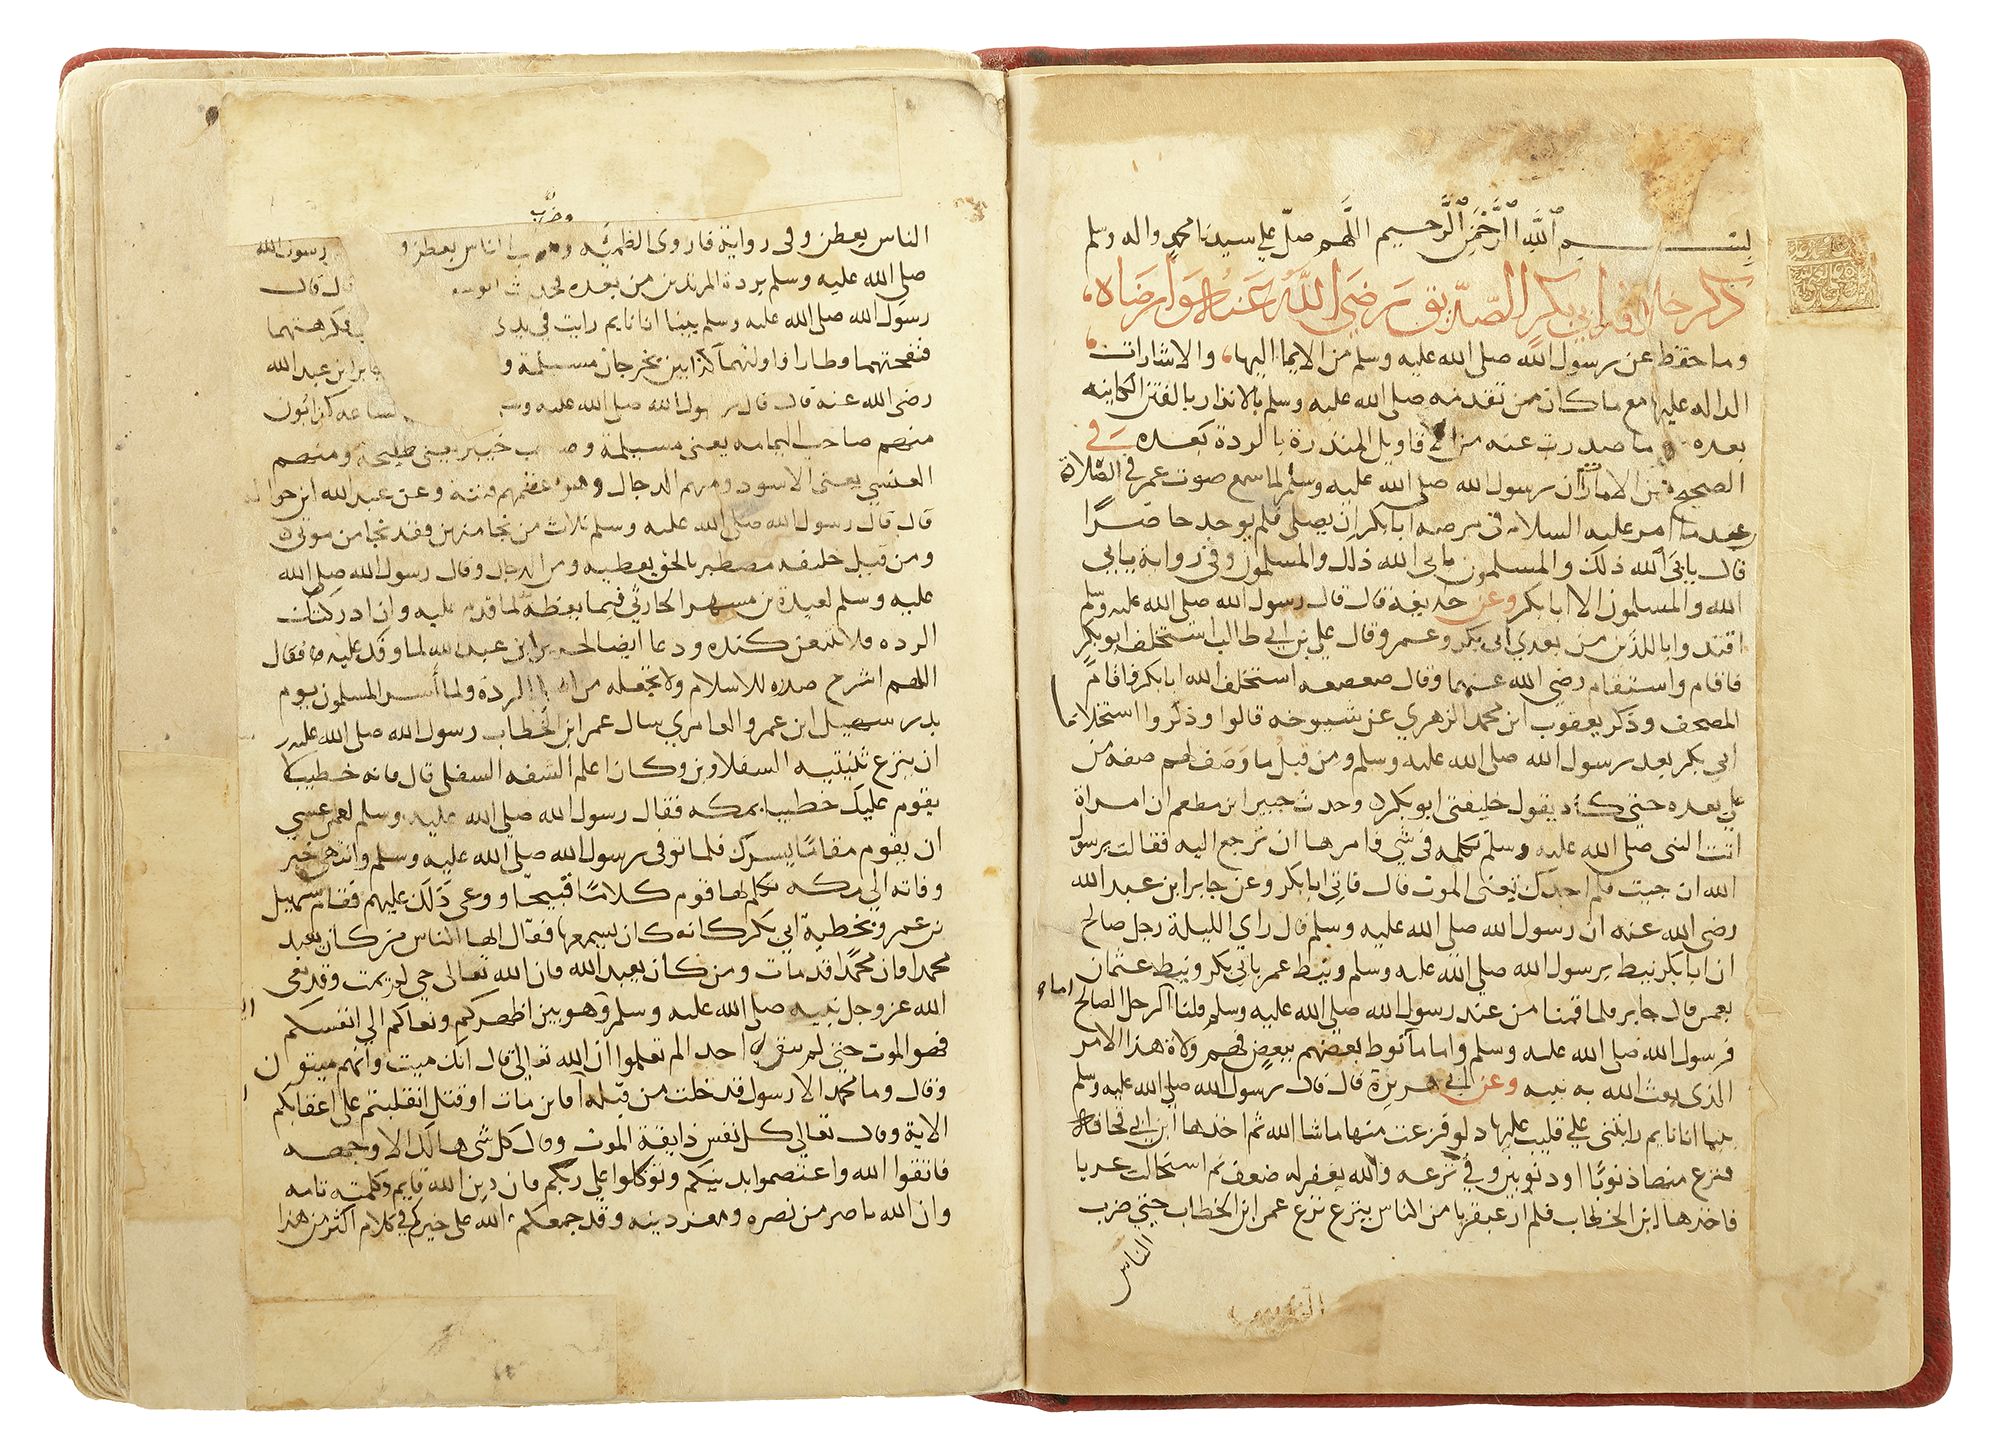 بسم الله الرحمن الرحيم اللهم صل علي سيدنا محمد واله وسلم
ذكر خلافة ابي بكر الصديق رضي الله عنه وارضاه
وما حفظ عن رسول الله صلى الله عليه وسلم من الايما اليها والاشارات
الداله عليها مع ما كان من تقدمه صلى الله عليه وسلم بالانذار بالفتن الكاينه
بعده وما صدرت عنه من الاقاويل المنذرة بالردة بعده في
الصحيح من الاثار ان رسول الله صلى الله عليه وسلم لما سمع صوت عمر في الصلاة
عندما امر عليه السلام في مرضه ابا بكر ان يصلي فلم يوجد حاضرا
قال يابى الله ذلك والمسلمون يابى الله ذلك والمسلمون وفي رواية يابي
الله والمسلمون الا ابا بكر وعن حذيفة قال قال رسول الله صلى الله عليه وسلم
اقتدوا باللذين من بعدي ابي بكر وعمر وقال علي بن ابي طالب استخلف ابو بكر
فاقام واستقام رضي الله عنهما وقال صعصعه استخلف الله ابا بكر فاقام
المصحف وذكر يعقوب ابن محمد الزهري عن شيوخه قالوا وذكروا استخلاف
ابي بكر بعد رسول الله صلى الله عليه وسلم ومن قبل ما وصف لهم صفه من
يلي بعده حتي كاد يقول خليفتي ابو بكر وحدث جبير ابن مطعم ان امراة
اتت النبي صلى الله عليه وسلم تكلمه في شي فامرها ان ترجع اليه فقالت يرسول
الله ان جيت فلم اجدك تعني الموت قال فاتي ابا بكر وعن جابر ابن عبد الله
رضي الله عنه ان رسول الله صلى الله عليه وسلم قال راي الليلة رجل صالح
ان ابا بكر نيط برسول الله صلى الله عليه وسلم ونيط عمر بابي بكر ونيط عثمان
بعمر قال جابر فلما قمنا من عند رسول الله صلى الله عليه وسلم قلنا الرجل الصالح
اما
فرسول الله صلى الله عليه وسلم واما ما نوط بعضهم ببعض فهم ولاة هذا الامر
الذي بعث الله به نبيه وعن ابي هريرة قال قال رسول الله صلى الله عليه وسلم
بينا انا نايم رايتني علي قليب عليها دلو فنزعت منها ما شا الله ثم اخذها ابن ابي قحافة
فنزع منها ذنوبا او ذنوبين وفي نزعه والله يغفر له ضعف ثم استحالت غربا
فاخذها ابن الخطاب فلم ار عبقريا من الناس ينزع نزع عمر ابن الخطاب حتي ضرب
الناس
وضرب
الناس بعطن وفي رواية فاروى الظمئه الناس بعطن
رسول الله
صلى الله عليه وسلم بردة المرتدين من بعده فحدث قال قال
رسول الله صلى الله عليه وسلم بينا انا نايم رايت في يدي فكرهتهما
فنفختهما وطارا فاولتهما كذابين يخرجان مسيلمة و جابر ابن عبد الله
رضي الله عنه قال قال رسول الله صلى الله عليه وسلم الساعه كذابون
منهم صاحب اليمامه يعني مسيلمة وصاحب خيبر يعني طليحة ومنهم
العنسي يعني الاسود ومنهم الدجال وهو اعظمهم فتنة وعن عبد الله ابن حوالة
قال قال رسول الله صلى الله عليه وسلم ثلاث من نجا منهن فقد نجا من موتي
ومن قتل خليفه مصطبر بالحق يعطيه ومن الدجال وقال رسول الله صلى الله
عليه وسلم لعبدة بن مسهر الحارثي فيما يعظه لما قدم عليه وان ادركتك
الرده فلا تتبعن كنده ودعا ايضا لجرير ابن عبد الله لما وفد عليه فقال
اللهم اشرح صدره للاسلام ولا تجعله من اهل الردة ولما أسر المسلمون يوم
بدر سهيل ابن عمرو العامري سال عمر ابن الخطاب رسول الله صلى الله عليه
ان ينزع ثنيتيه السفلاوين وكان اعلم الشفه السفلي قال فانه خطيب لا
يقوم عليك خطيبا بمكه فقال رسول الله صلى الله عليه وسلم لعمر عسي
ان يقوم مقاما يسرك فلما توفي رسول الله صلى الله عليه وسلم وانتهى خبر
وفاته الي مكه تكلم بها قوم كلاما قبيحا ووعى ذلك عليهم فقام سهيل
بن عمرو بخطبة ابي بكر كانه كان يسمعها فقال ايها الناس من كان يعبد
محمدا فان محمدا قد مات ومن كان يعبد الله فان الله تعالى حي لم يمت وقد نعى
الله عز وجل نبيه صلى الله عليه وسلم وهو بين اظهركم ونعاكم الي انفسكم
فهو الموت حتي لم يبق احد الم تعلموا ان الله تعالى قال انك ميت وانهم ميتون
وقال وما محمد الا رسول قد خلت من قبله افاين مات او قتل انقلبتم على اعقابكم
الاية وقال تعالي كل نفس ذايقة الموت وقال كل شي هالك الا وجهه
فاتقوا الله واعتصموا بدينكم وتوكلوا على ربكم فان دين الله قايم وكلمته تامه
وان الله ناصر من نصره ومعز دينه وقد جمعكم الله على خيركم في كلام اكثر من هذا